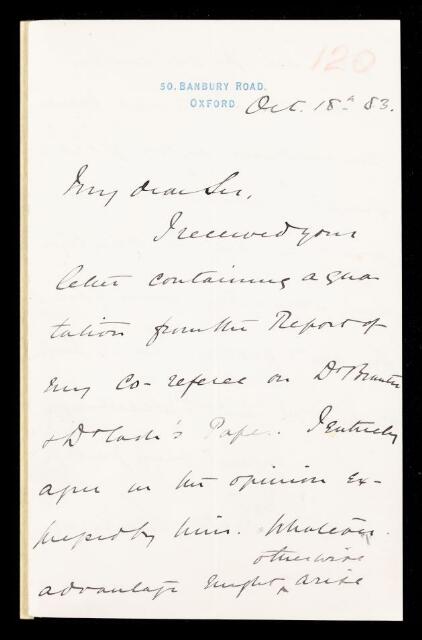 120
50. BANBURY ROAD.
OXFORD
Oct. 18th 83.
My dear Sir,
I received your
letter containing a quo-
tation from the Report of
my co-referee on Dr Brunton
& Dr Cash's Paper. I entirely
agree in the opinion ex-
pressed by him. Whatever
otherwise
advantage might ‸ arise